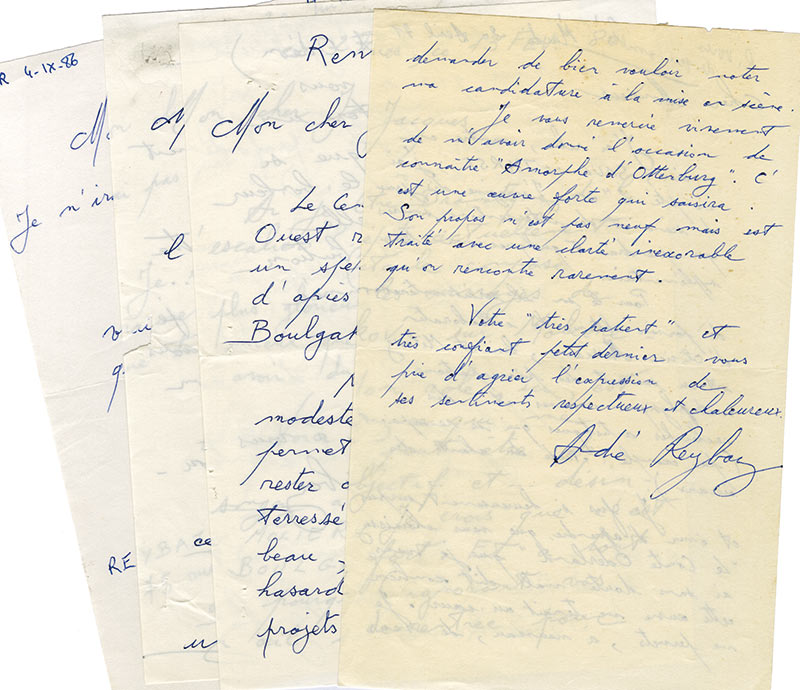 R 4-IX-86
M
Je n'ir
RE
M
l
ce
Ren
Mon cher
Le Cen
Ouest r
un spe
d'après
Boulgak
modeste
permet
rester
terressé
beau,
hasard
projets
demander de bien vouloir noter
ma candidature à la mise en scène.
Je vous remercie vivement
de m'avoir donné l'occasion de
connaître "Amorphe d'Ottenburg". C'
est une œuvre forte qui saisira.
Son propos n'est pas neuf mais est
traité avec une clarté inexorable
qu'on rencontre rarement.
Votre "très patient" et
très confiant petit dernier vous
prie d'agréer l'expression de
ses sentiments respectueux et chaleureux.